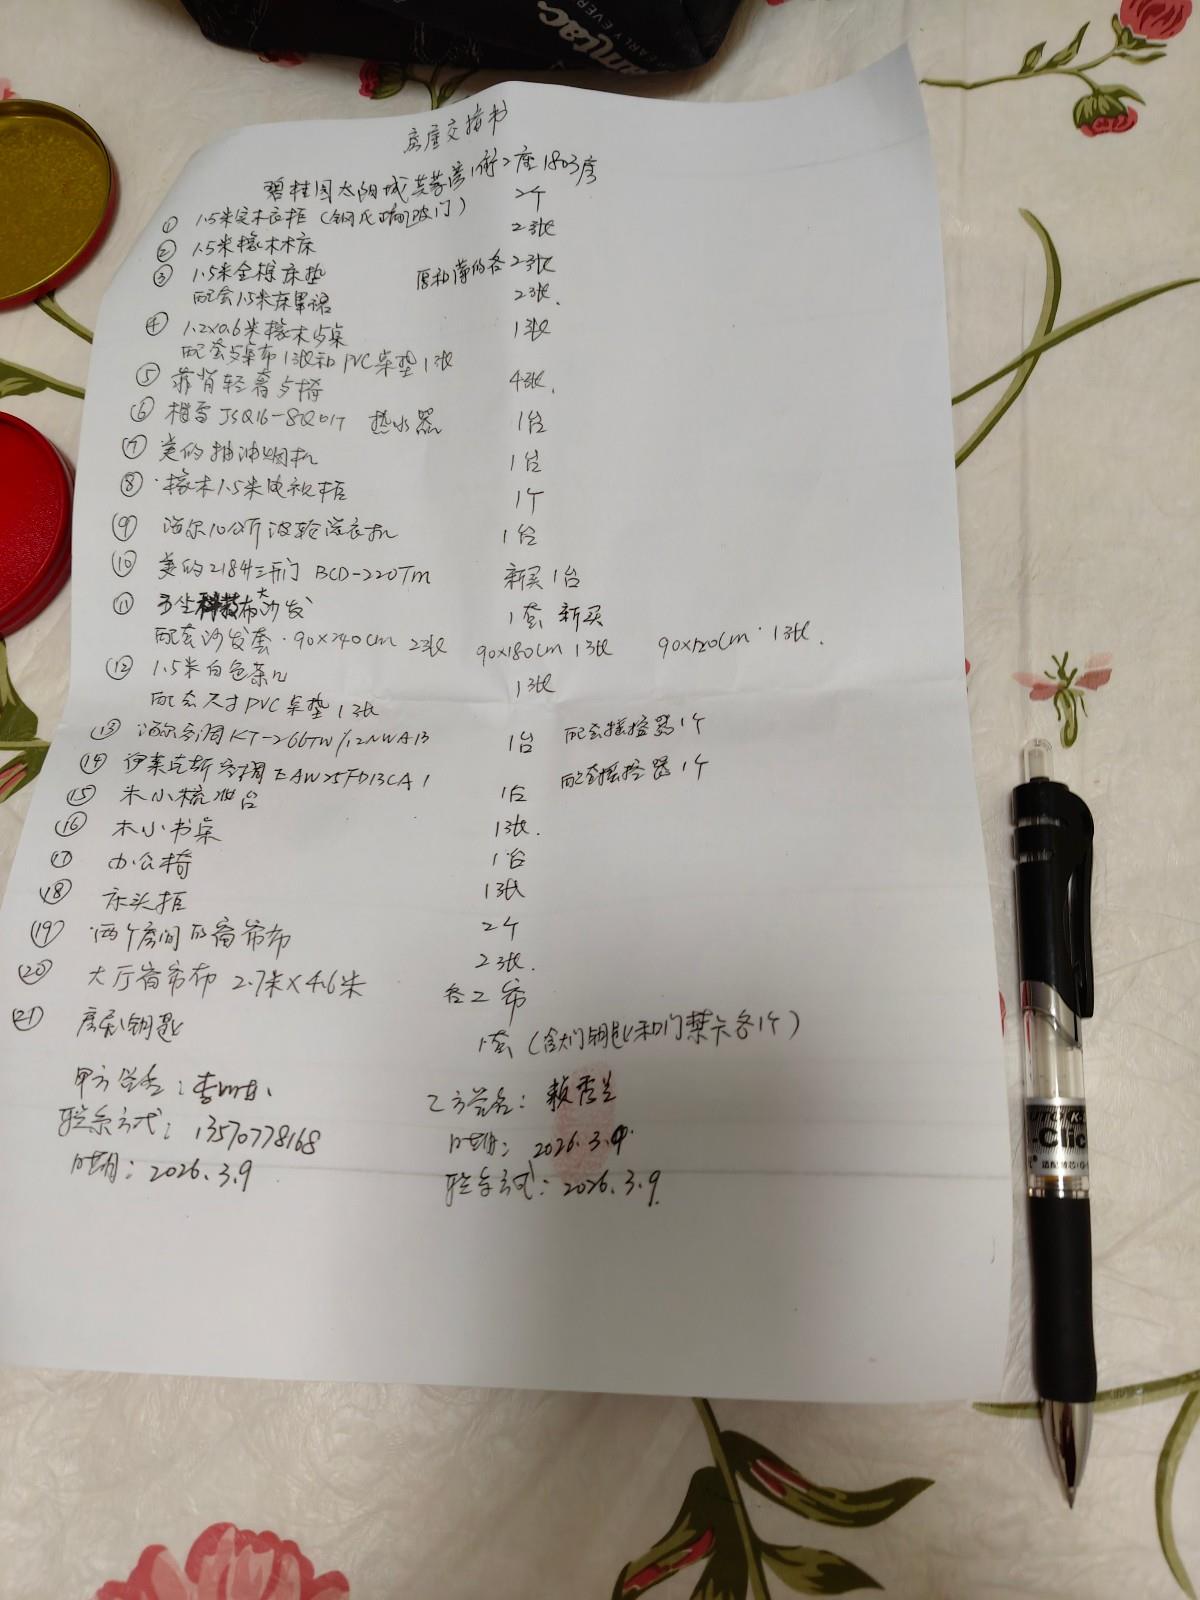 房屋交接书
碧桂园太阳城芙蓉湾1街2座1803房
① 1.5米实木衣柜(钢氏璃玻门) 2个
② 1.5米橡木木床 2张
③ 1.5米全棕床垫 厚和薄的各2张
配套1.5米床单裙 2张.
④ 1.2x0.6米橡木书桌 1张
配套书桌布1张和PVC桌垫1张
⑤ 靠背轻奢书椅 4张.
⑥ JSQ16-8Q01T 热水器 1台
⑦ 美的抽油烟机 1台
⑧ 橡木1.5米电视柜 1个
⑨ 海尔10公斤波轮洗衣机 1台
⑩ 美的218升三开门 BCD-220TM 新买1台
⑪ 科技布大沙发 1套 新买
配套沙发套·90x240cm 2张 90x180cm 1张 90x120cm·1张.
⑫ 1.5米白色茶几 1张
配套尺寸PVC桌垫1张
⑬ 海尔空调KT-26GTW/12NWA13 1台 配套摇控器1个
⑭ 伊莱克斯空调EAW25FD13CA1 配套摇控器1个
⑮ 木小梳妆台 1台
⑯ 木小书桌 1张.
⑰ 办公椅 1台
⑱ 床头柜 1张
⑲ 两个房间的窗帘布 2个
⑳ 大厅窗帘布 2.7米X4.6米 2张.
㉑ 房屋钥匙 各2布
1套(含大门钥匙和门禁卡各1个)
甲方签名: 乙方签名: 赖秀兰
联系方式: 13570778168 日期: 2026.3.9.
日期: 2026.3.9 联系方式: 2026.3.9.
amtac
EARLY EVER
-Clic